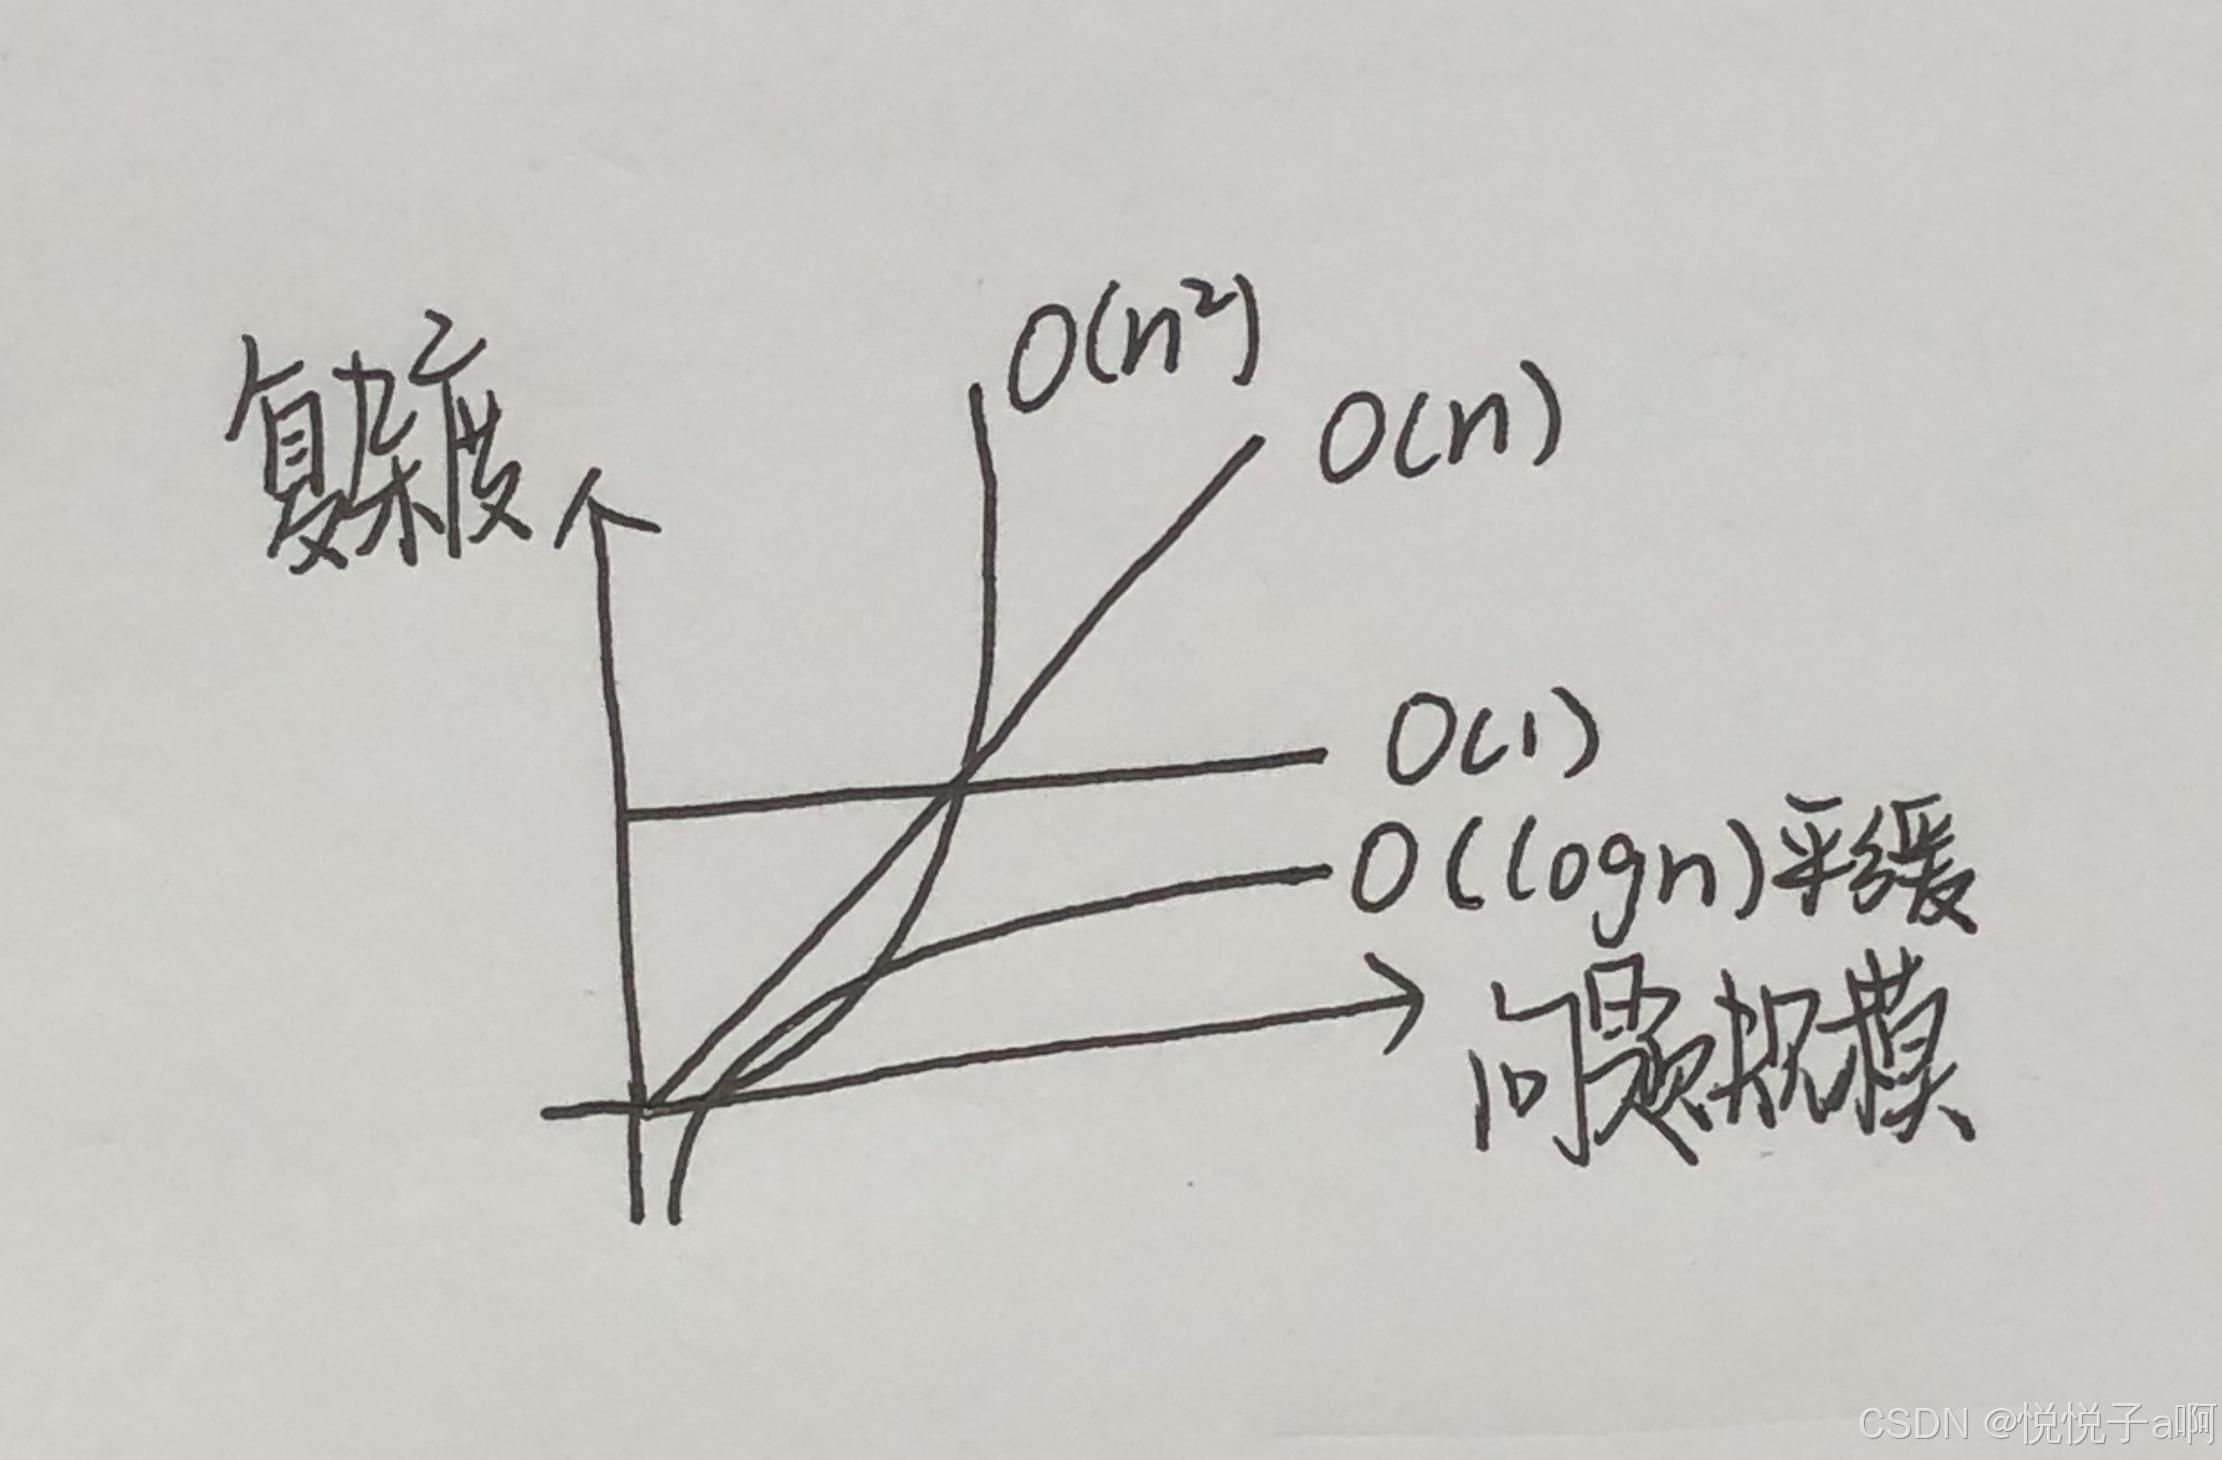 O(n²)
复杂度
O(n)
O(1)
O(logn)平缓
问题规模
CSDN @悦悦子a啊